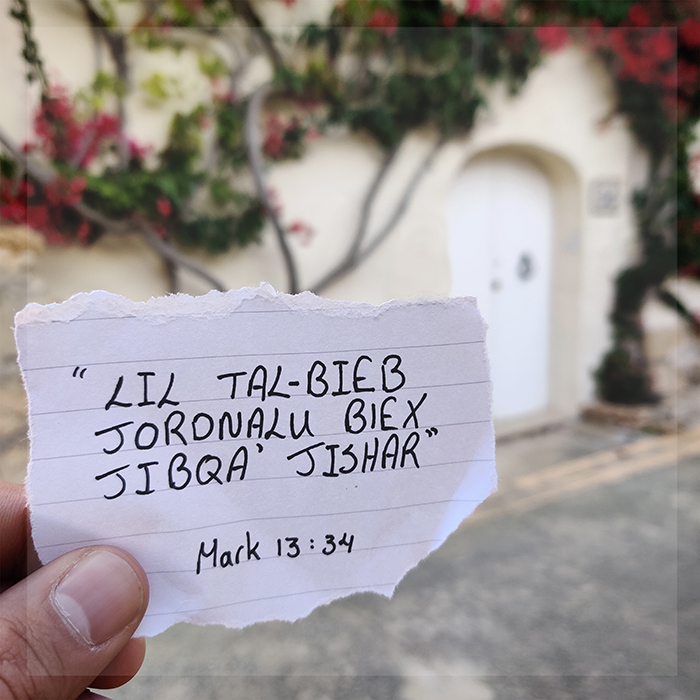 " LIL TAL-BIEB
JORDNALU BIEX
JIBQA' JISHAR"
Mark 13:34